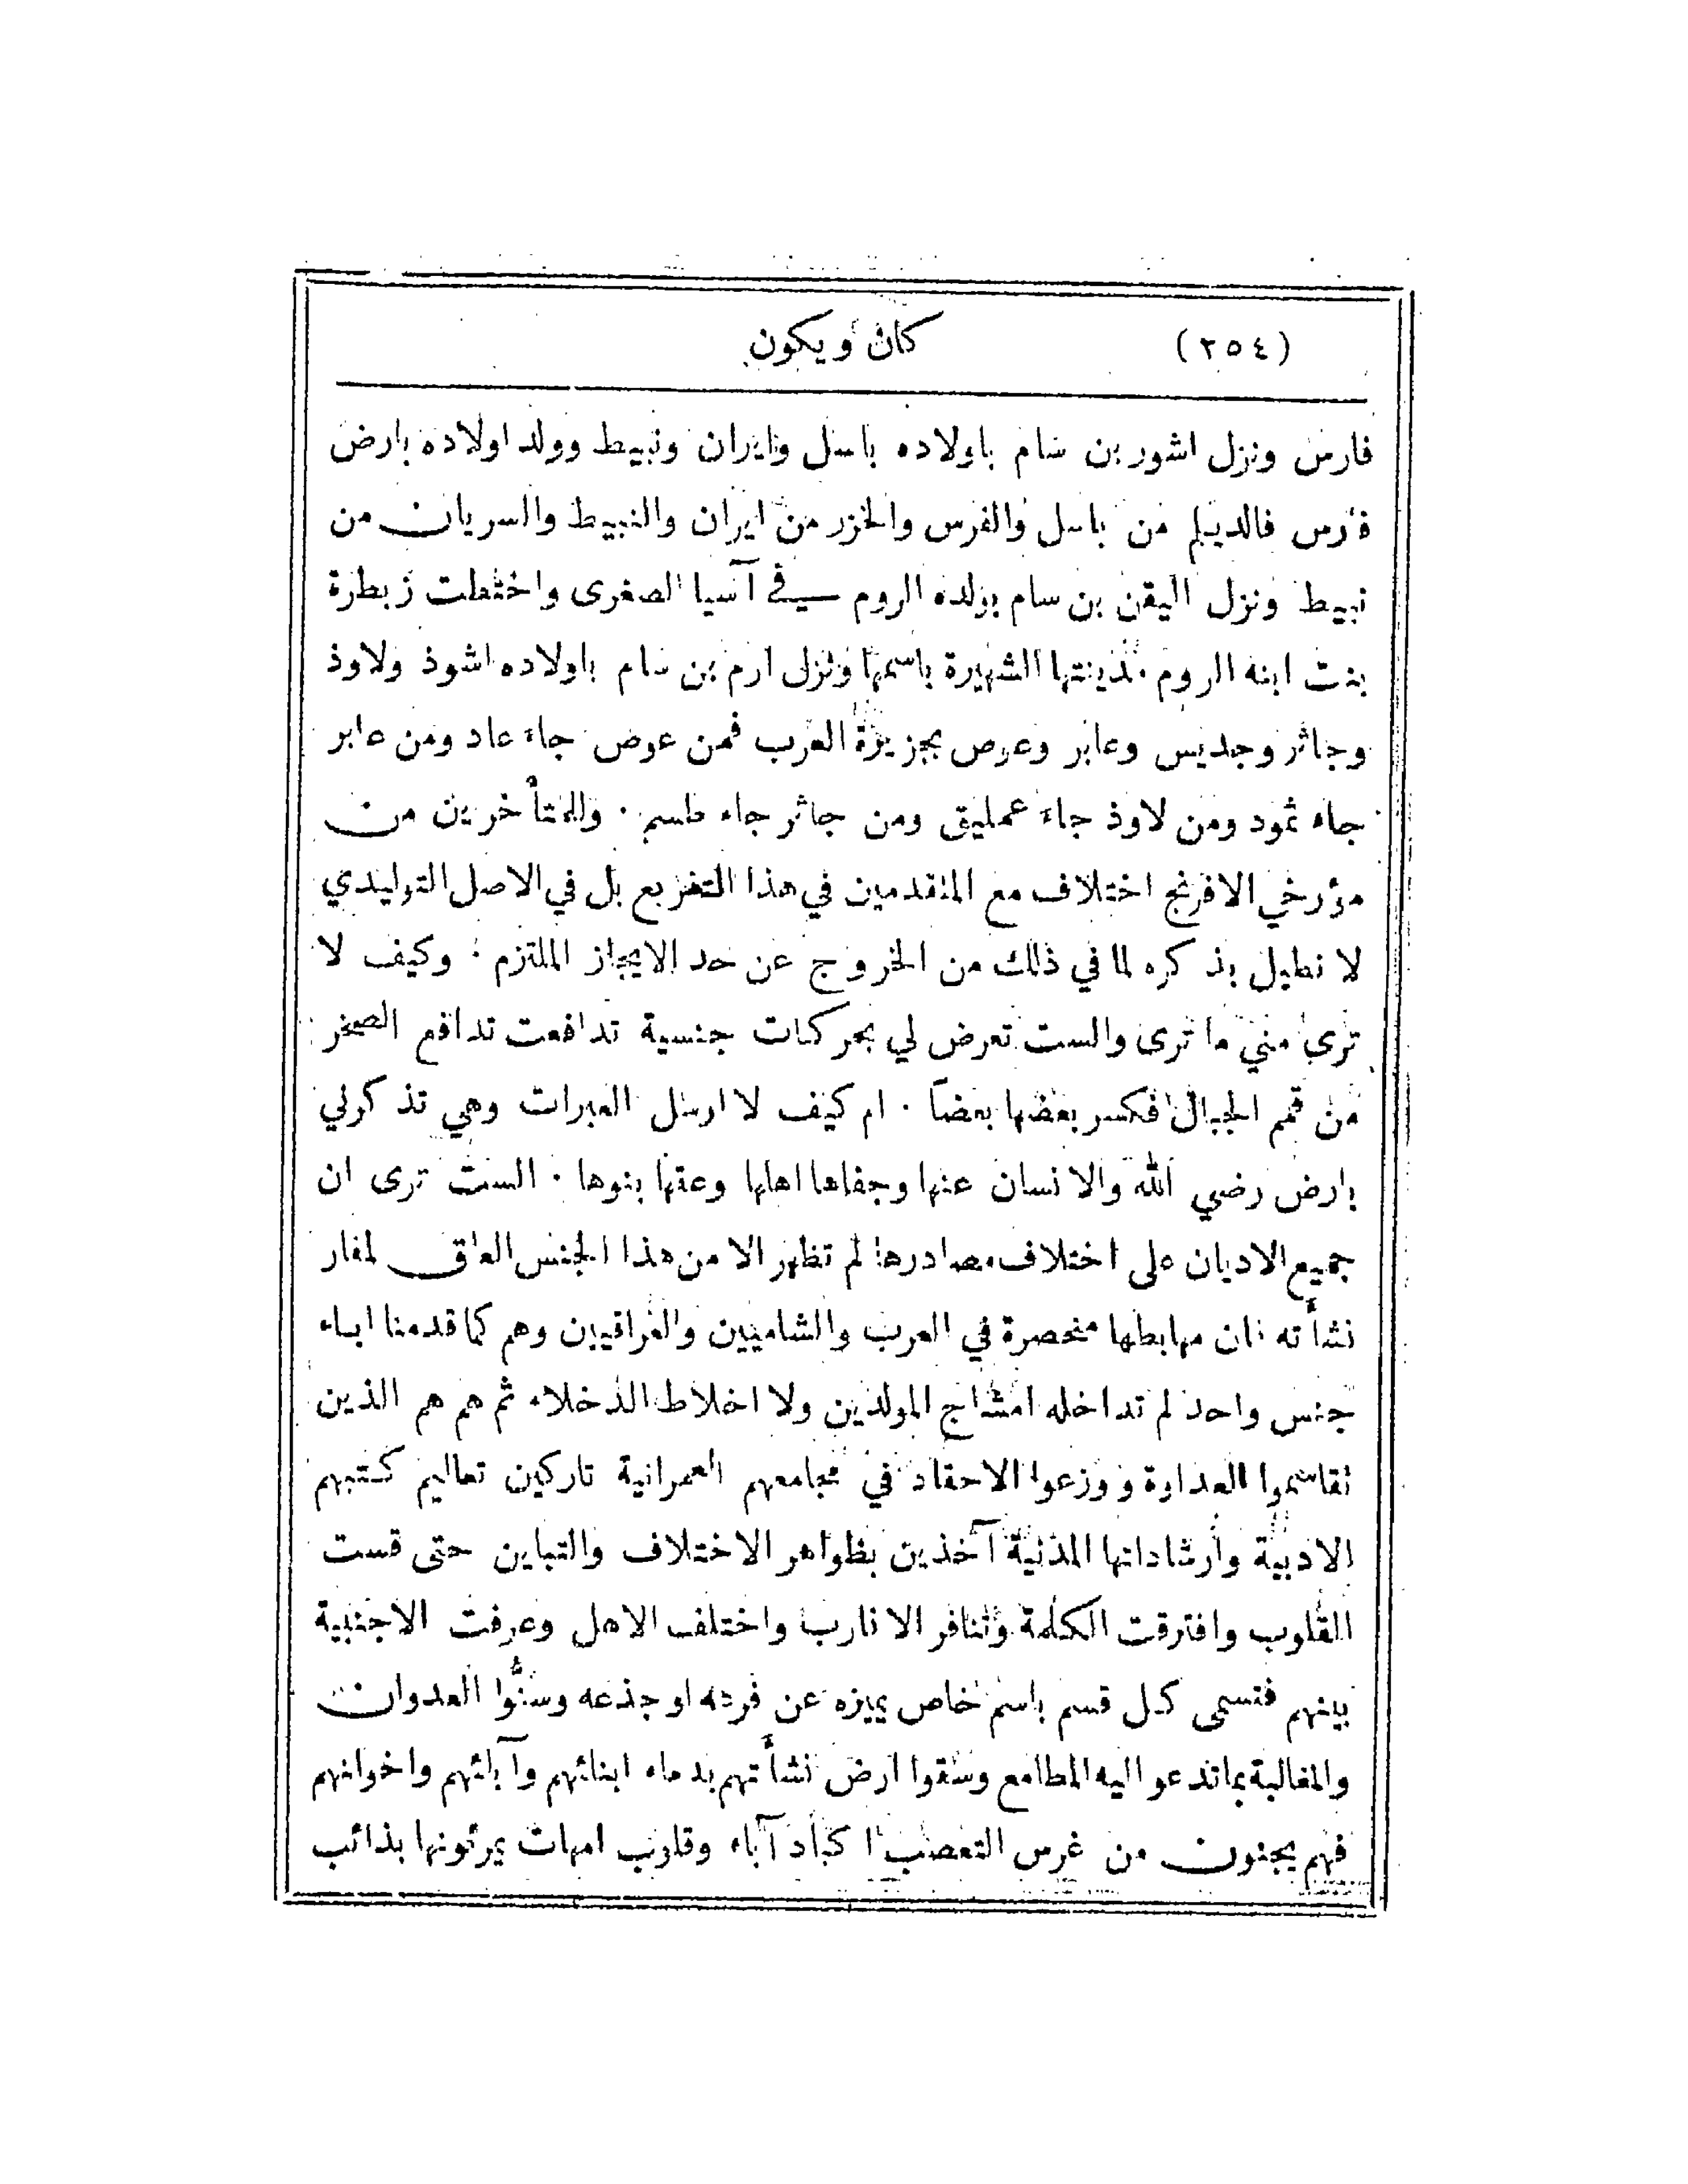 (٢٥٤) كان ويكون
فارس ونزل اشور بن سام باولاده باسل وايران ونبيط وولد اولاده بارض
فارس فالديلم من باسل والفرس والخزر من ايران والنبيط والسريان من
نبيط ونزل اليقن بن سام بولده الروم في آسيا الصغرى واختطت زبطرة
بنت ابنه الروم مدينتها الشهيرة باسمها ونزل ارم بن سام باولاده اشوذ ولاوذ
وجاثر وجديس وعابر وعوص بجزيرة العرب فمن عوض جاء عاد ومن عابر
جاء ثمود ومن لاوذ جاء عمليق ومن جاثر جاء طسم . وللمتأخرين من
مؤرخي الافرنج اختلاف مع المتقدمين في هذا التفريع بل في الاصل التوليدي
لا نطيل بذكره لما في ذلك من الخروج عن حد الايجاز الملتزم . وكيف لا
ترى مني ما ترى والست تعرض لي بحركات جنسية تدافعت تدافع الصخر
من قمم الجبال فكسر بعضها بعضاً . ام كيف لا ارسل العبرات وهي تذكرني
بارض رضي الله والانسان عنها وجفاها اهلها وعقها بنوها . الست ترى ان
جميع الاديان على اختلاف مصادرها لم تظهر الا من هذا الجنس العاق لمغار
نشأته فان مهابطها منحصرة في العرب والشاميين والعراقيين وهم كما قدمنا ابناء
جنس واحد لم تداخله امشاج المولدين ولا اخلاط الدخلاء ثم هم هم الذين
تقاسموا العداوة ووزعوا الاحقاد في مجامعهم العمرانية تاركين تعاليم كتبهم
الادبية وارشاداتها المدنية آخذين بظواهر الاختلاف والتباين حتى قست
القلوب وافترقت الكلمة وتنافر الاقارب واختلف الاهل وعرفت الاجنبية
بينهم فتسمى كل قسم باسم خاص يميزه عن فرده او جذعه وسنُّوا العدوان
والمغالبة بما تدعو اليه المطامع وسقوا ارض نشأتهم بدماء ابنائهم وآبائهم واخوانهم
فهم يجنون من غرس التعصب اكباد آباء وقلوب امهات يرثونها بذائب